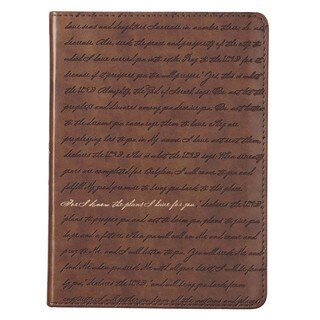 decrease. Also, seek the peace and prosperity of the city to
which I have carried you into exile. Pray to the LORD for it,
because if it prospers, you too will prosper." Yes, this is what
the LORD Almighty, the God of Israel, says: "Do not let the
prophets and diviners among you deceive you. Do not listen
to the dreams you encourage them to have. They are
prophesying lies to you in my name. I have not sent them,"
declares the LORD. This is what the LORD says: "When seventy
years are completed for Babylon, I will come to you and
fulfill my good promise to bring you back to this place.
For I know the plans I have for you," declares the LORD,
"plans to prosper you and not to harm you, plans to give you
hope and a future. Then you will call on me and come and
pray to me, and I will listen to you. You will seek me and
find me when you seek me with all your heart. I will be found
by you," declares the LORD, "and will bring you back from